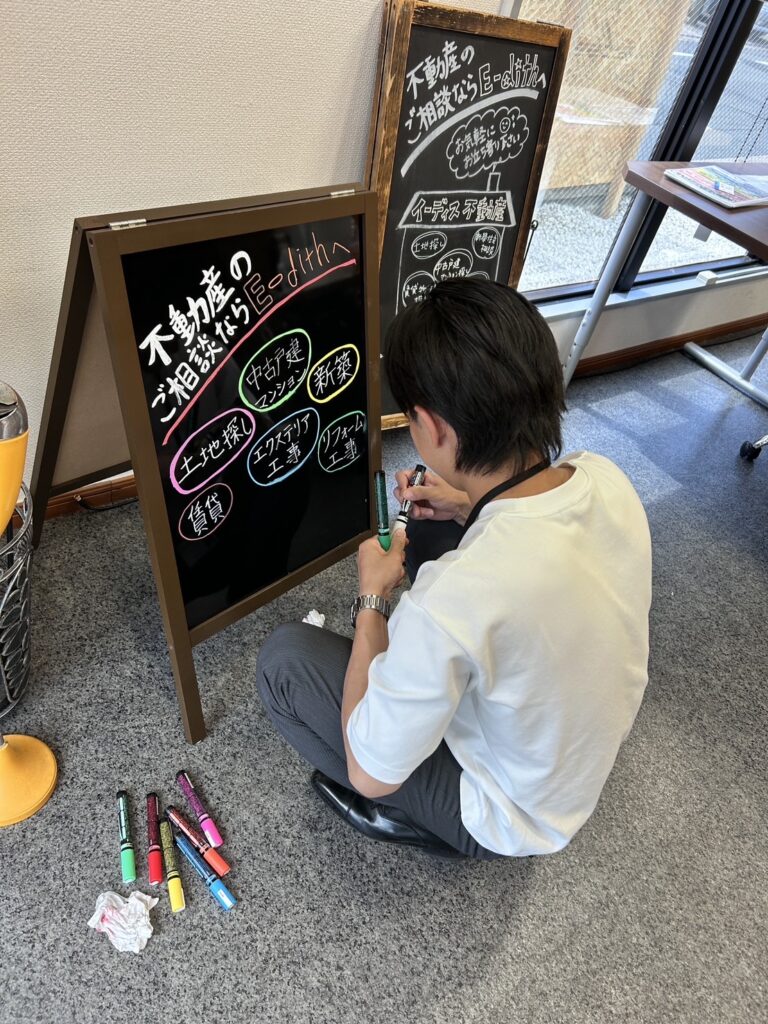 不動産の
ご相談なら E-dithへ
中古戸建
マンション
新築
土地探し
エクステリア
工事
リフォーム
工事
賃貸
不動産の
ご相談なら E-dithへ
お気軽に
お立ち寄り下さい
イーディス不動産
土地探し
中古戸建